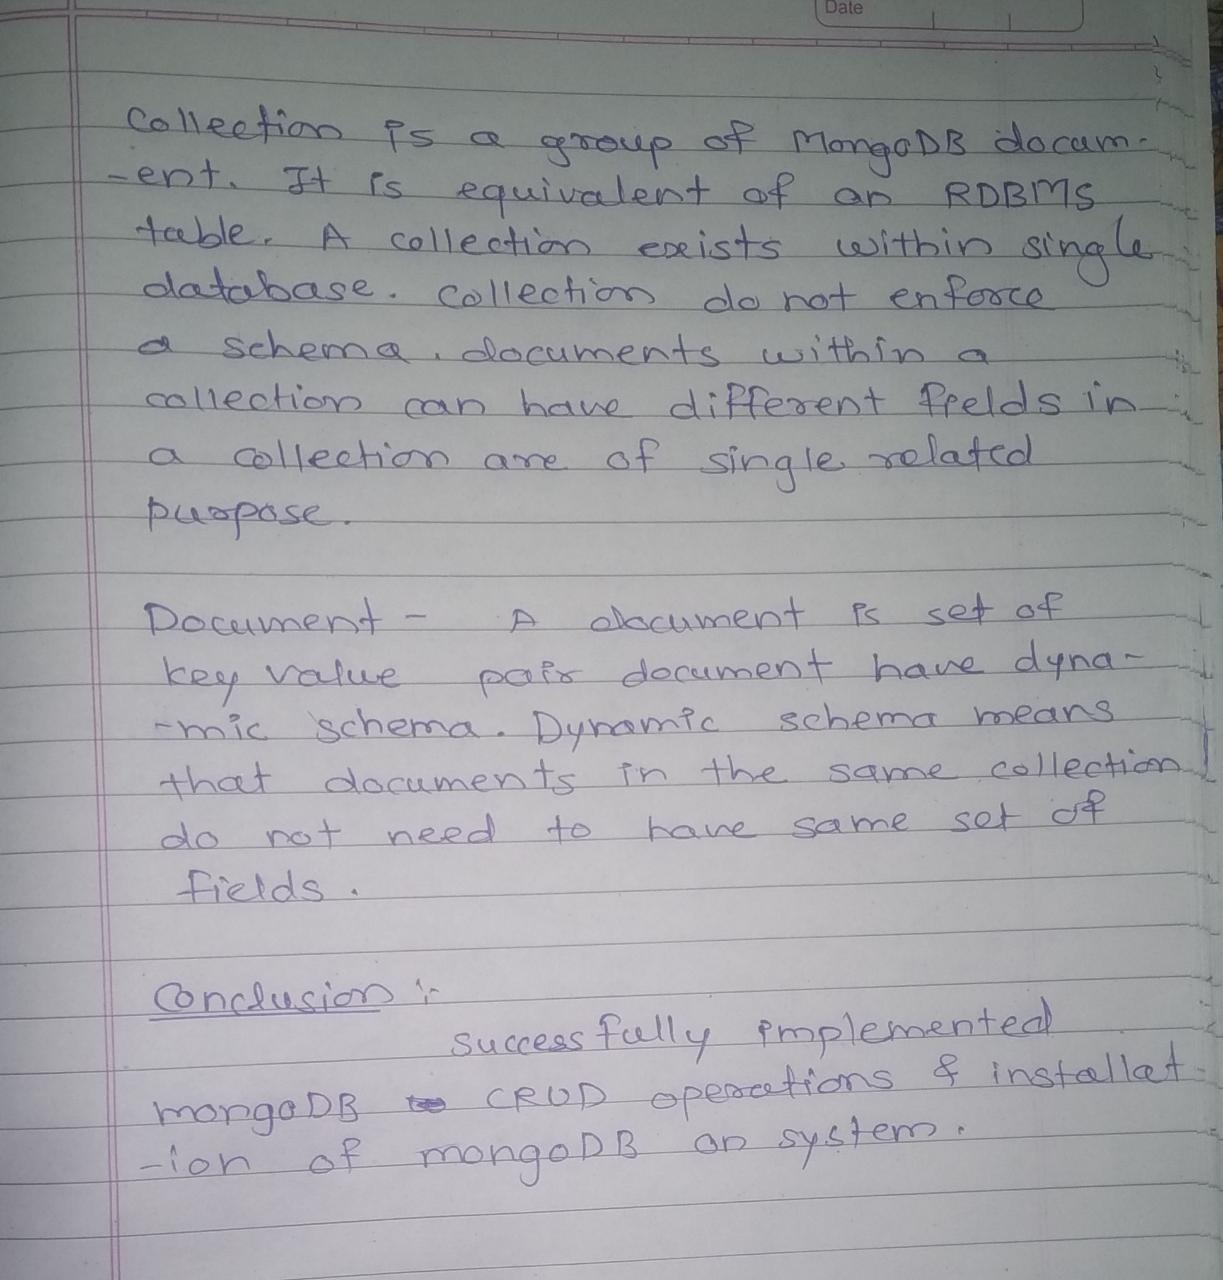 Date
Collection is a group of MongoDB docum-
-ent. It is equivalent of an RDBMS
table. A collection exists within single
database. collection do not enforce
a schema. documents within a
collection can have different fields in
a collection are of single related
purpose.
Document - A document is set of
key value pair document have dyna-
-mic schema. Dynamic schema means
that documents in the same collection
do not need to have same set of
fields.
Conclusion :-
successfully implemented
mongoDB CRUD operations & installat-
-ion of mongoDB on system.